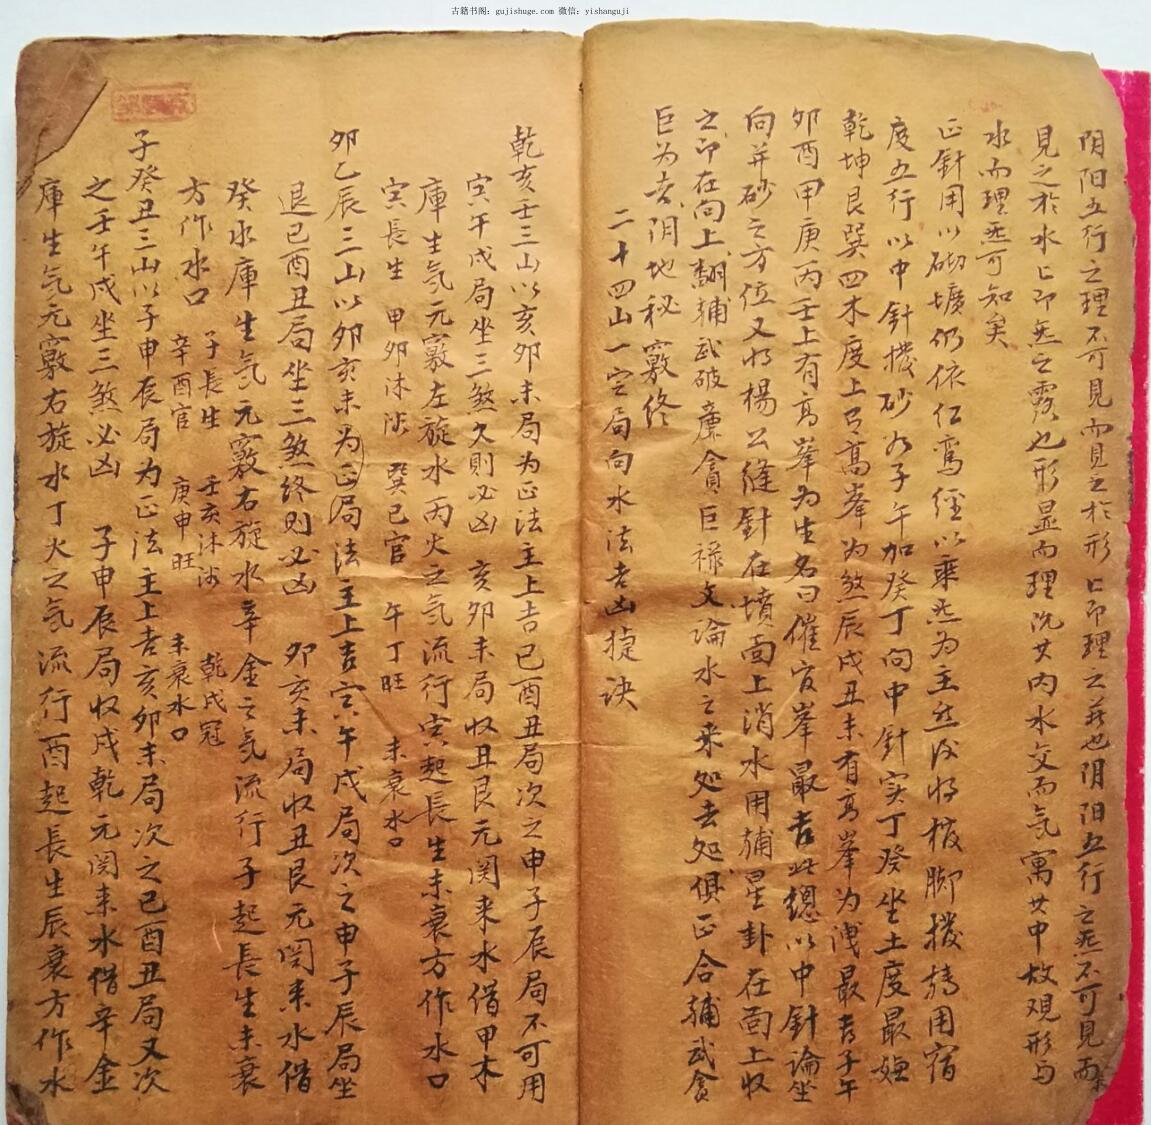 古籍书阁: gujishuge.com 微信: yishanguji
阴阳五行之理不可見而見之於形 即理之 也阴阳五行之炁不可見而
見之於水 即炁之露也形显而理沉其内水交而气寓其中故观形与
水而理炁可知矣
正針用以砌壙仍依 經以乘炁为主然後将 脚撥轉用宿
度五行以中針撥砂如子午加癸丁向中針实丁癸坐土度最嫌
乾坤艮巽四木度上有高峯为煞辰戌丑未有高峯为洩最吉子午
卯酉甲庚丙壬上有高峯为生名曰催官峯最吉此總以中針論坐
向并砂之方位又将楊公缝針在墳面上消水用辅星卦在面上收
之即在向上翻辅武破廉貪巨禄文論水之来処去処俱正合辅武貪
巨为吉阴地秘竅终
二十四山一定局向水法吉凶捷诀
乾亥壬三山以亥卯未局为正法主上吉巳酉丑局次之申子辰局不可用
寅午戌局坐三煞久則必凶 亥卯未局收丑艮元関来水借甲木
庫生气元竅左旋水丙火之气流行寅起長生未衰方作水口
寅長生 甲卯沐浴 巽巳官 午丁旺 未衰水口
卯乙辰三山以卯亥未为正局法主上吉寅午戌局次之申子辰局坐
退巳酉丑局坐三煞终则必凶 卯亥未局收丑艮元関来水借
癸水庫生气元竅右旋水辛金之气流行子起長生未衰
方作水口 子長生 壬亥沐浴 乾戌冠
辛酉官 庚申旺 未衰水口
子癸丑三山以子申辰局为正法主上吉亥卯未局次之巳酉丑局又次
之壬午戌坐三煞必凶 子申辰局收戌乾元関来水借辛金
庫生气元竅右旋水丁火之气流行酉起長生辰衰方作水